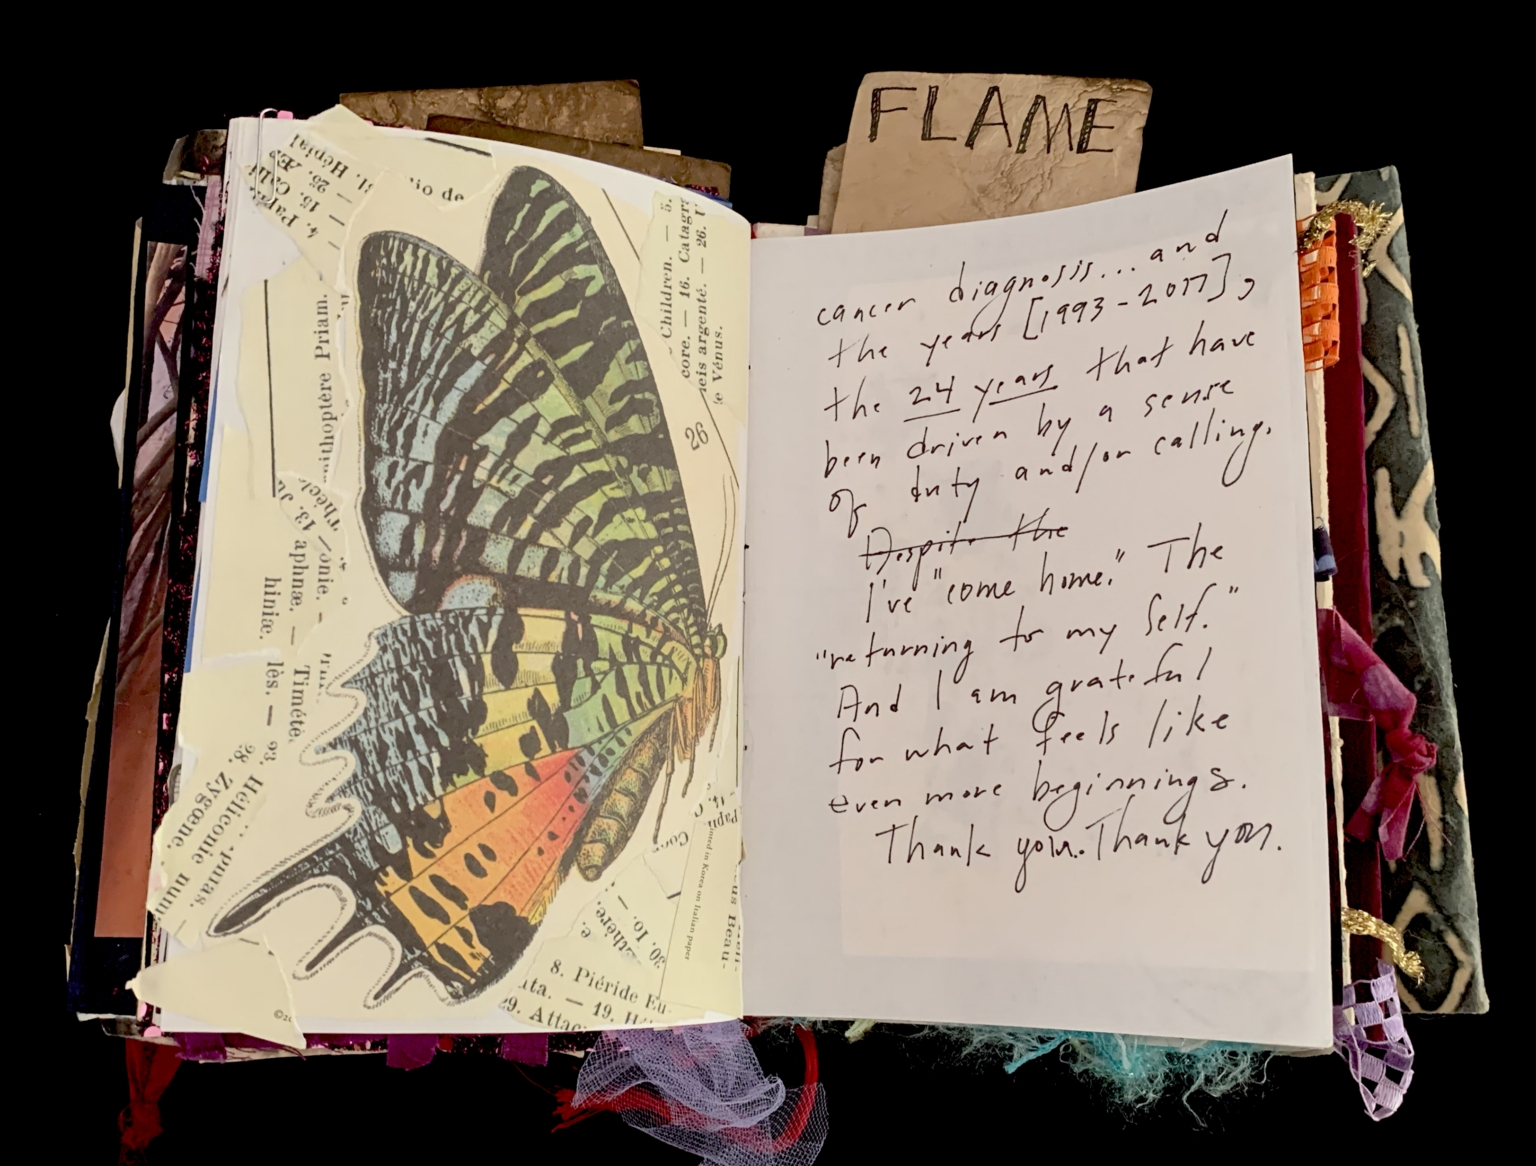 FLAME
cancer diagnosis... and
the years [1993-2017],
the 24 years that have
been driven by a sense
of duty and/or calling.
Despite the
I've "come home." The
"returning to my self."
And I am grateful
for what feels like
even more beginnings.
Thank you. Thank you.
io de
51. Hépial
25.
15.
4.
Children. — 5.
core. — 16. Catagr
neis argenté. — 26. U
e Vénus.
26
nithoptère Priam.
13. Ju
aphnæ. —
hiniæ.
onie. —
Timéte
lès. — 23.
28. Zygœne
Héliconie num
-pumas.
Printed in Korea on Italian paper
Beau-
30. Io. —
8. Piéride Eu-
ata. — 19. Hé
29. Attac